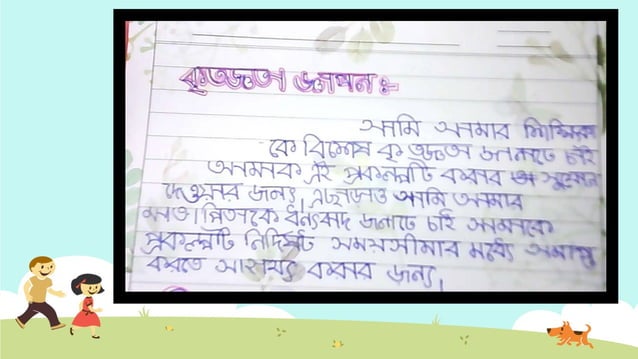 কৃতজ্ঞতা জ্ঞাপন :-
আমি আমার শিক্ষিকা
কে বিশেষ কৃতজ্ঞতা জানাতে চাই
আমাকে এই প্রকল্পটি করার সুযোগ
দেওয়ার জন্য, এছাড়াও আমি আমার
মাতা পিতাকে ধন্যবাদ জানাতে চাই আমাকে
প্রকল্পটি নির্দিষ্ট সময়সীমার মধ্যে সমাপ্ত
করতে সাহায্য করার জন্য।